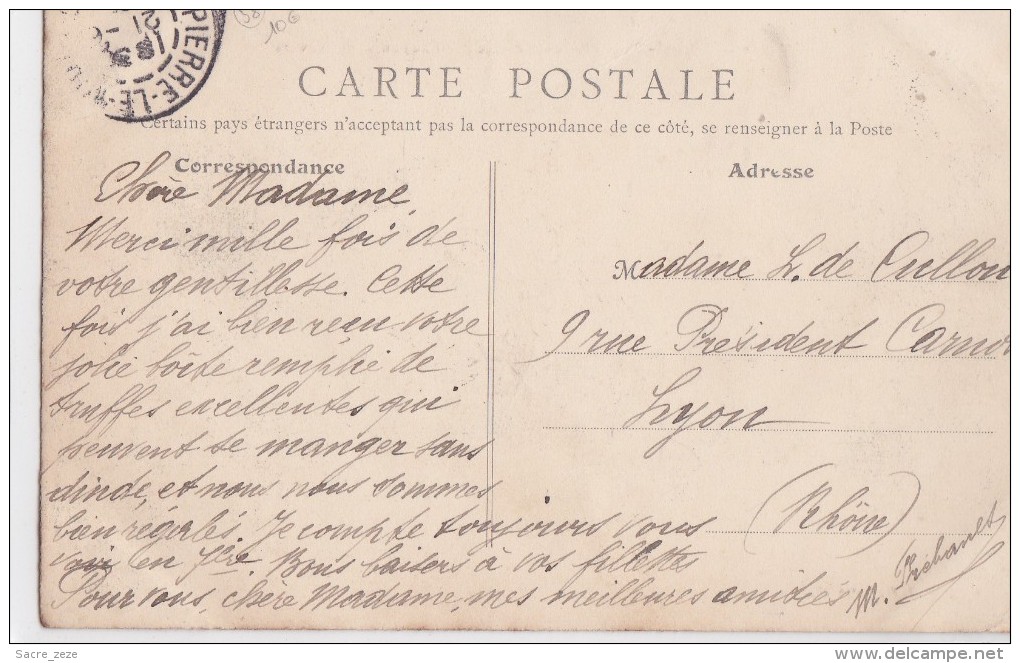 PIERRE-LE-M
21
58
10€
CARTE POSTALE
Certains pays étrangers n'acceptent pas la correspondance de ce côté, se renseigner à la Poste
Correspondance
Chère Madame,
Merci mille fois de
votre gentillesse. Cette
fois j'ai bien reçu votre
jolie boîte remplie de
truffes excellentes qui
peuvent se manger sans
dinde, et nous nous sommes
bien régalés. Je compte toujours vous
voir en Fère. Bons baisers à vos fillettes
Pour vous, chère Madame, mes meilleures amitiés
M.
Adresse
Madame L. de Cullon
9 rue Président Carno
Lyon
(Rhône)
Sacre_zeze
www.delcampe.net